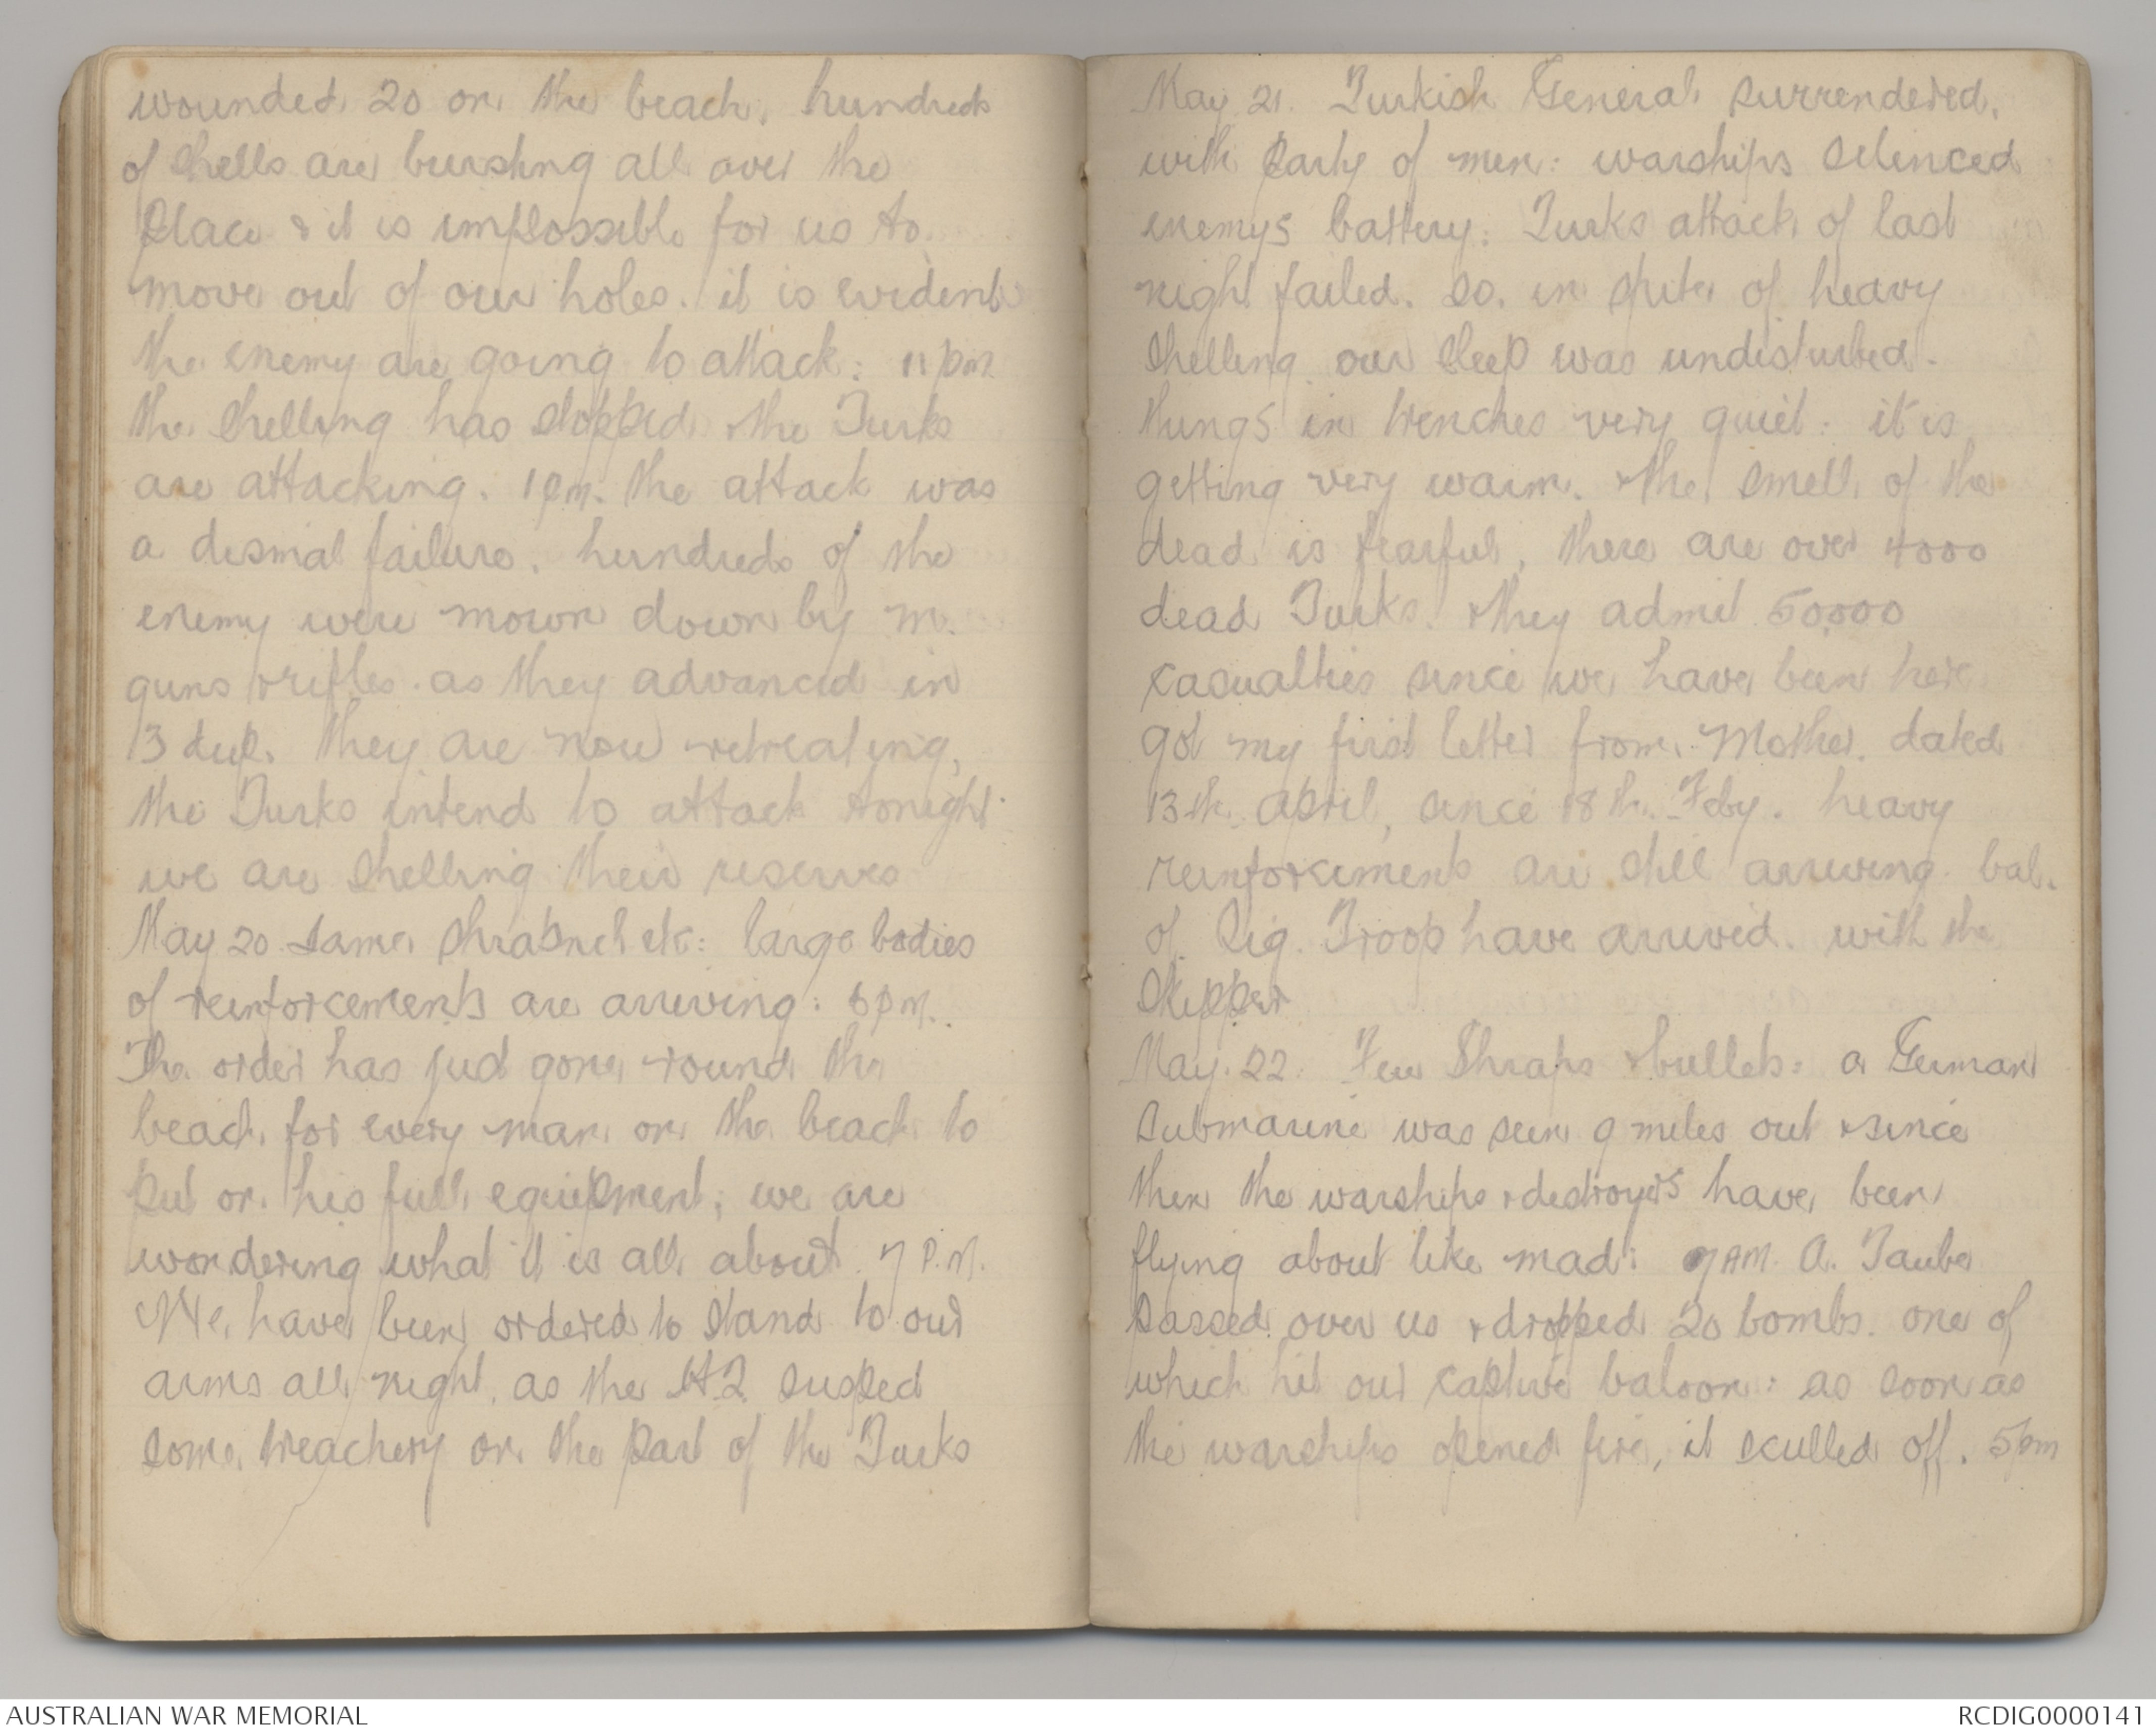 wounded. 20 on the beach. hundreds
of shells are bursting all over the
place & it is impossible for us to
move out of our holes. it is evident
the enemy are going to attack: 11 pm
the shelling has stopped & the Turks
are attacking. 1 pm. the attack was
a dismal failure. hundreds of the
enemy were mown down by m.
guns & rifles as they advanced in
13 deep. they are now retreating,
the Turks intend to attack tonight.
we are shelling their reserves
May 20 Same shrapnel etc: large bodies
of reinforcements are arriving: 6 pm.
The order has just gone round the
beach for every man on the beach to
put on his full equipment; we are
wondering what it is all about. 7 P.M.
We have been ordered to stand to our
arms all night. as the suspect
some treachery on the part of the Turks
May 21. Turkish General surrendered.
with party of men: warships silenced
enemys battery: Turks attack of last
night failed. so. in spite of heavy
shelling our sleep was undisturbed.
things in trenches very quiet: it is
getting very warm. & the smell of the
dead is fearful, there are over 4000
dead Turks. & they admit 50,000
casualties since we have been here
got my first letter from Mother. dated
13th. April, since 18th. Feby. heavy
reinforcements are still arriving. bal.
of Sig. Troop have arrived. with the
Skipper
May. 22. Few Shraps & bullets: a German
submarine was seen 9 miles out & since
then the warships & destroyers have been
flying about like mad: 7 AM. A. Taube
passed over us & dropped 20 bombs. one of
which hit our captive baloon: as soon as
the warships opened fire, it sculled off. 5 pm
AUSTRALIAN WAR MEMORIAL
RCDIG0000141